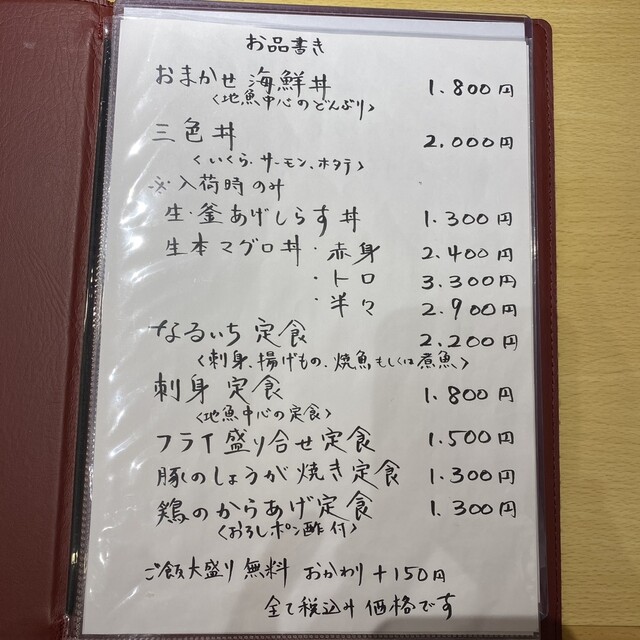 お品書き
おまかせ 海鮮丼 1.800円
<地魚中心のどんぶり>
三色丼 2.000円
<いくら.サーモン、ホタテ>
※入荷時のみ
生・釜あげしらす丼 1.300円
生本マグロ丼・赤身 2.400円
・トロ 3.300円
・半々 2.900円
なるいち定食 2.200円
<刺身、揚げもの、焼魚もしくは煮魚>
刺身定食 1.800円
<地魚中心の定食>
フライ盛り合せ定食 1.500円
豚のしょうが焼き定食 1.300円
鶏のからあげ定食 1.300円
<おろしポン酢付>
ご飯大盛り 無料 おかわり +150円
全て税込み価格です